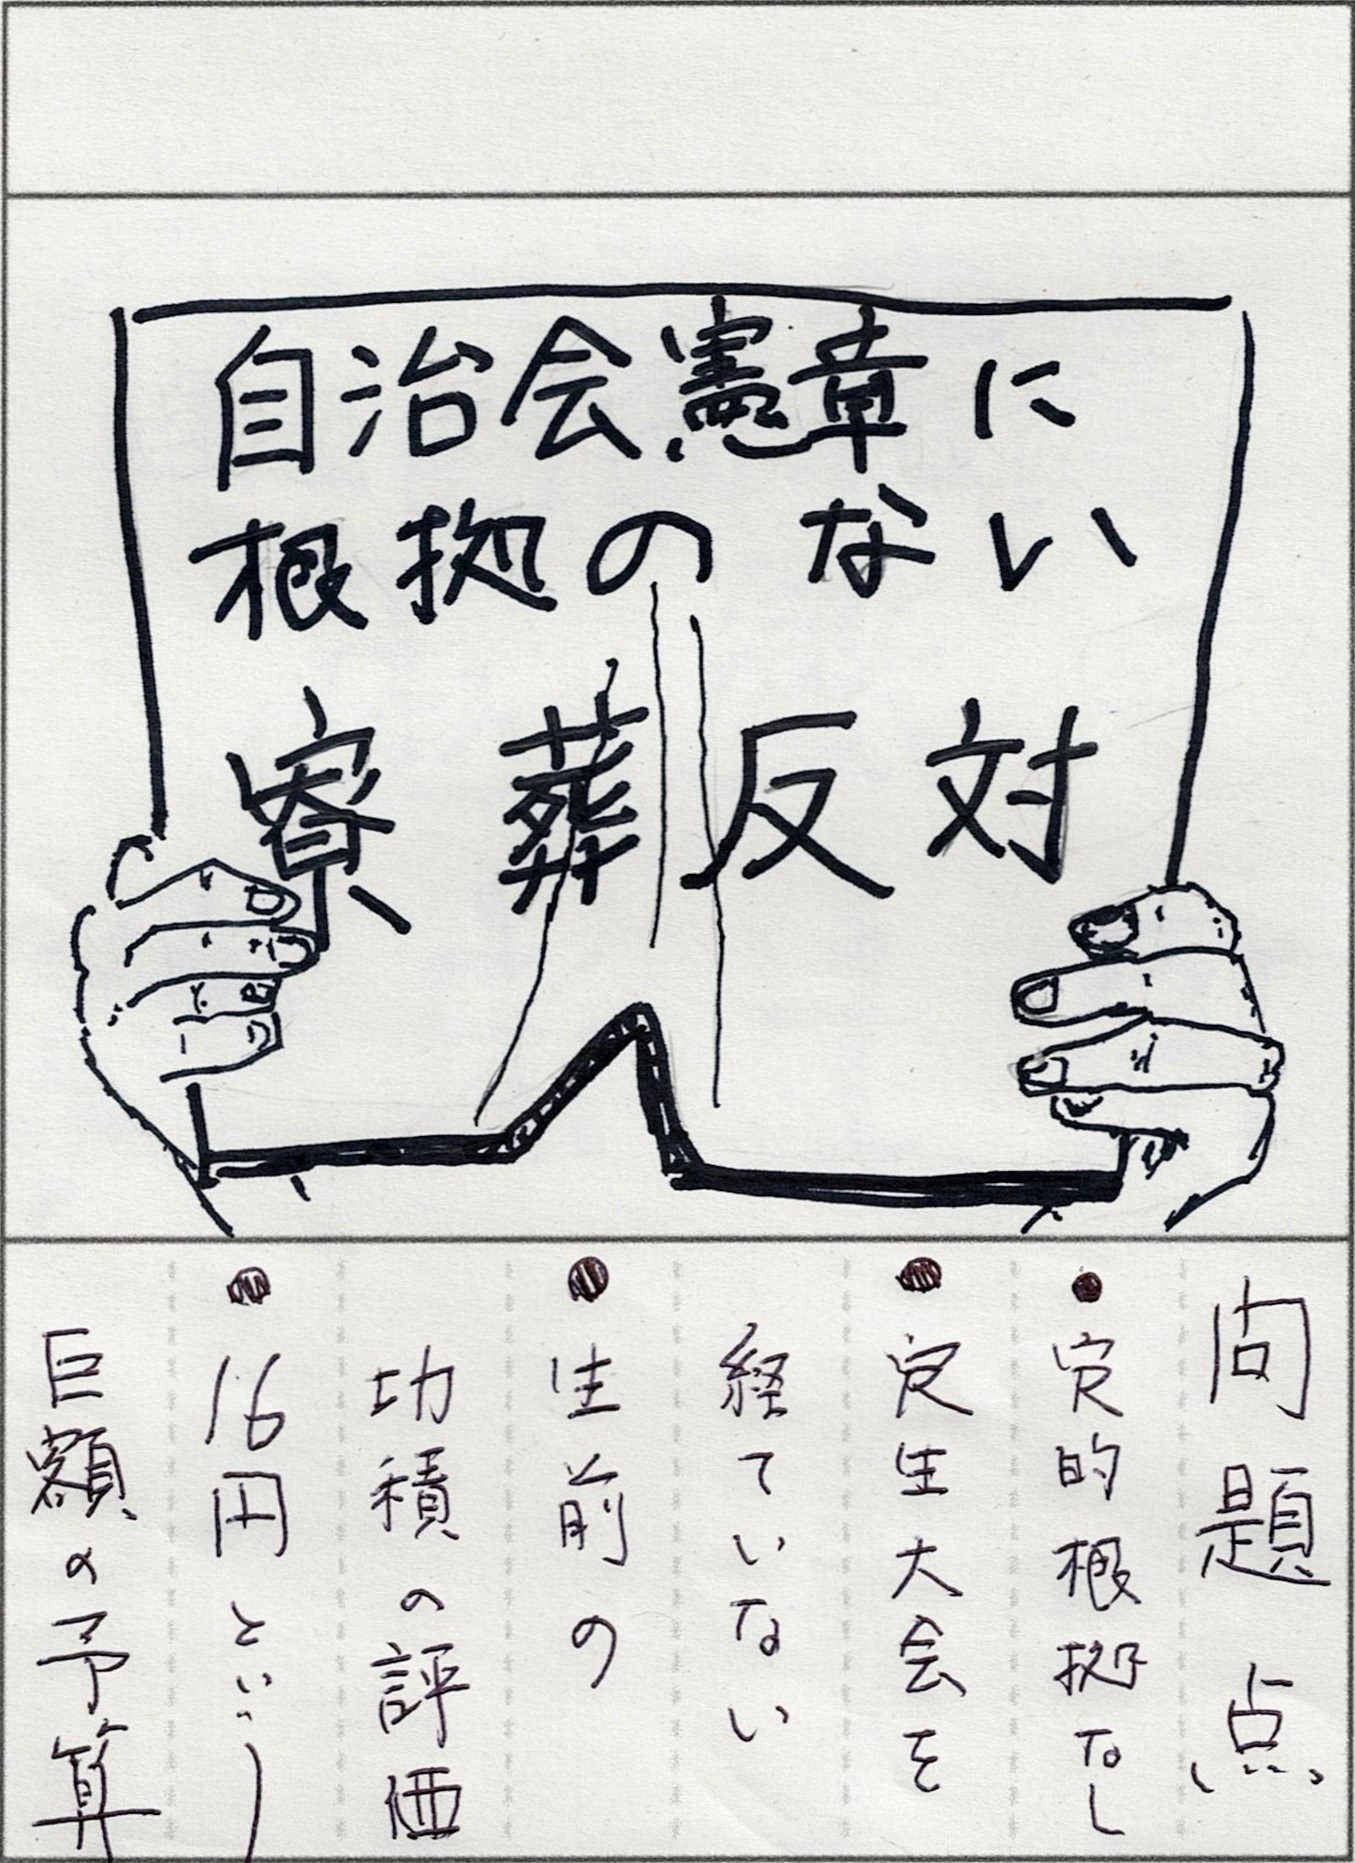 自治会憲章に
根拠のない
寮葬反対
問題点
●寮的根拠なし
●寮生大会を
経ていない
●生前の
功積の評価
●16円という
巨額の予算